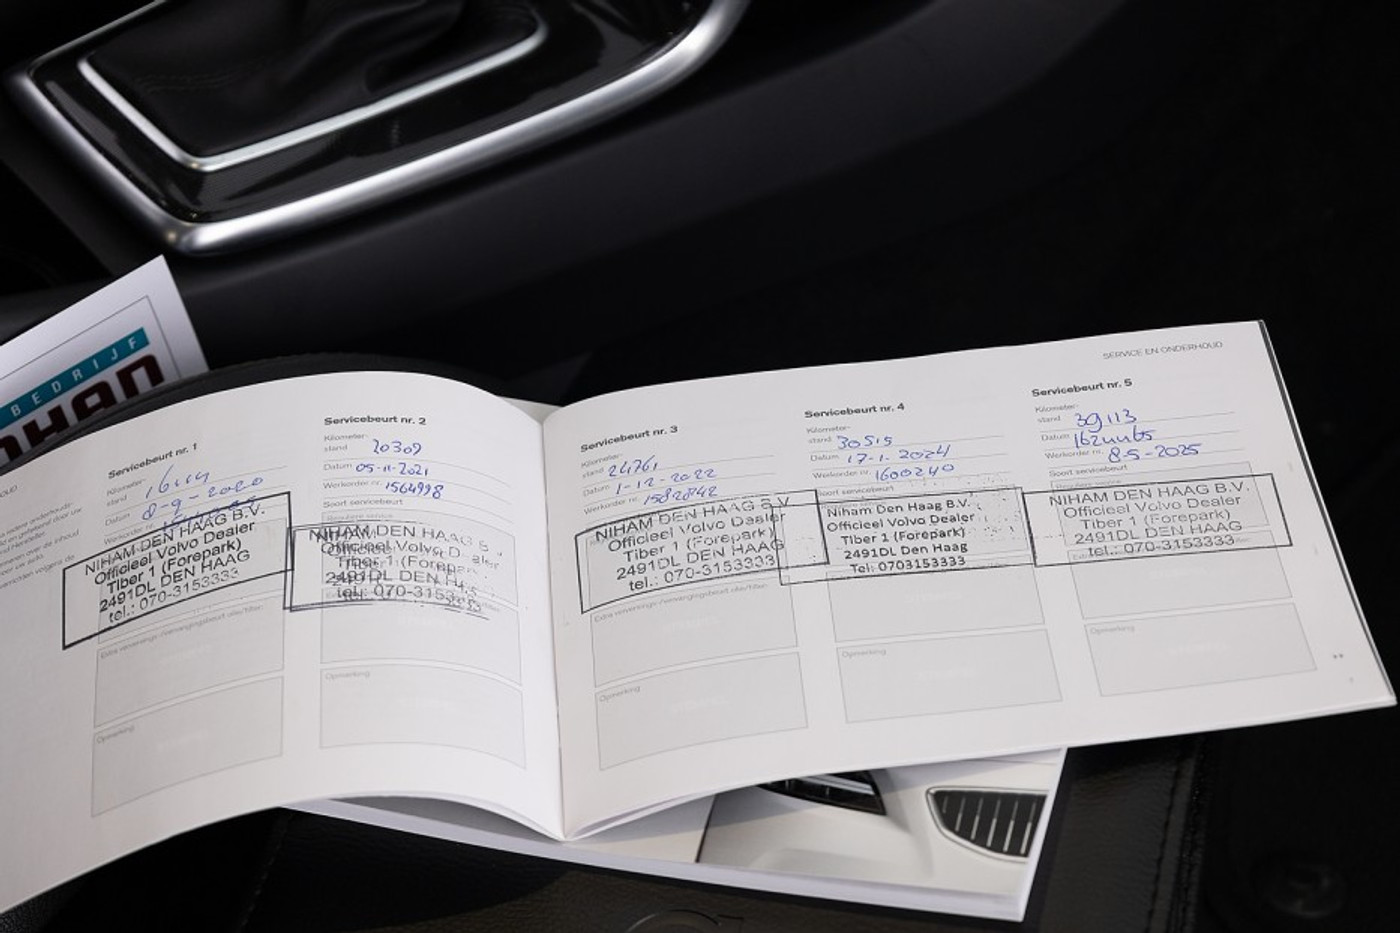 BEDRIJF
SERVICE EN ONDERHOUD
Servicebeurt nr. 1
Kilometer-
stand
Datum 8-9-2020
Werkorder nr.
NIHAM DEN HAAG B.V.
Officieel Volvo Dealer
Tiber 1 (Forepark)
2491DL DEN HAAG
tel.: 070-3153333
Extra verversings-/vervangingsbeurt olie/filter:
Opmerking
Servicebeurt nr. 2
Kilometer-
stand 20309
Datum 05-11-2021
Werkorder nr. 1564998
Soort servicebeurt
Reguliere service
NIHAM DEN HAAG B.V.
Officieel Volvo Dealer
Tiber 1 (Forepark)
2491DL DEN HAAG
tel.: 070-3153333
Opmerking
Servicebeurt nr. 3
Kilometer-
stand 24761
Datum 1-12-2022
Werkorder nr. 1582842
NIHAM DEN HAAG B.V.
Officieel Volvo Dealer
Tiber 1 (Forepark)
2491DL DEN HAAG
tel.: 070-3153333
Extra verversings-/vervangingsbeurt olie/filter:
Opmerking
Servicebeurt nr. 4
Kilometer-
stand 30515
Datum 17-1-2024
Werkorder nr. 1600240
Soort servicebeurt
Niham Den Haag B.V.
Officieel Volvo Dealer
Tiber 1 (Forepark)
2491DL Den Haag
Tel: 0703153333
Opmerking
Servicebeurt nr. 5
Kilometer-
stand 39113
Datum 1624465
Werkorder nr. 8-5-2025
Soort servicebeurt
NIHAM DEN HAAG B.V.
Officieel Volvo Dealer
Tiber 1 (Forepark)
2491DL DEN HAAG
tel.: 070-3153333
Opmerking